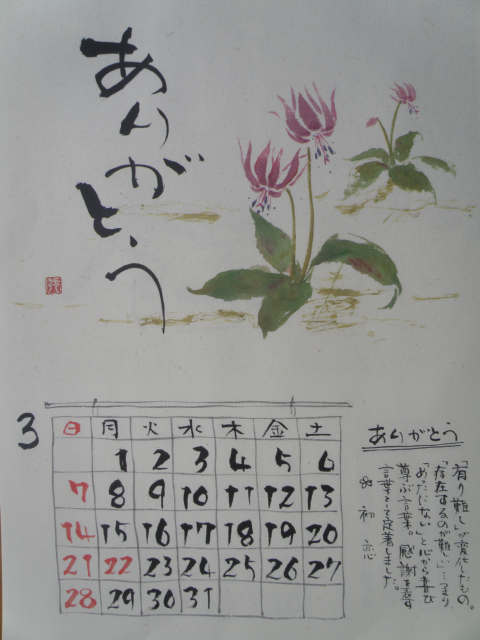 ありがとう
3
日 月 火 水 木 金 土
1 2 3 4 5 6
7 8 9 10 11 12 13
14 15 16 17 18 19 20
21 22 23 24 25 26 27
28 29 30 31
ありがとう
「有り難し」が変化したもの。
「存在するのが難しい」…つまり
「めったにない」と心から喜び
尊ぶ言葉。感謝を表す
言葉として定着しました。
初恋